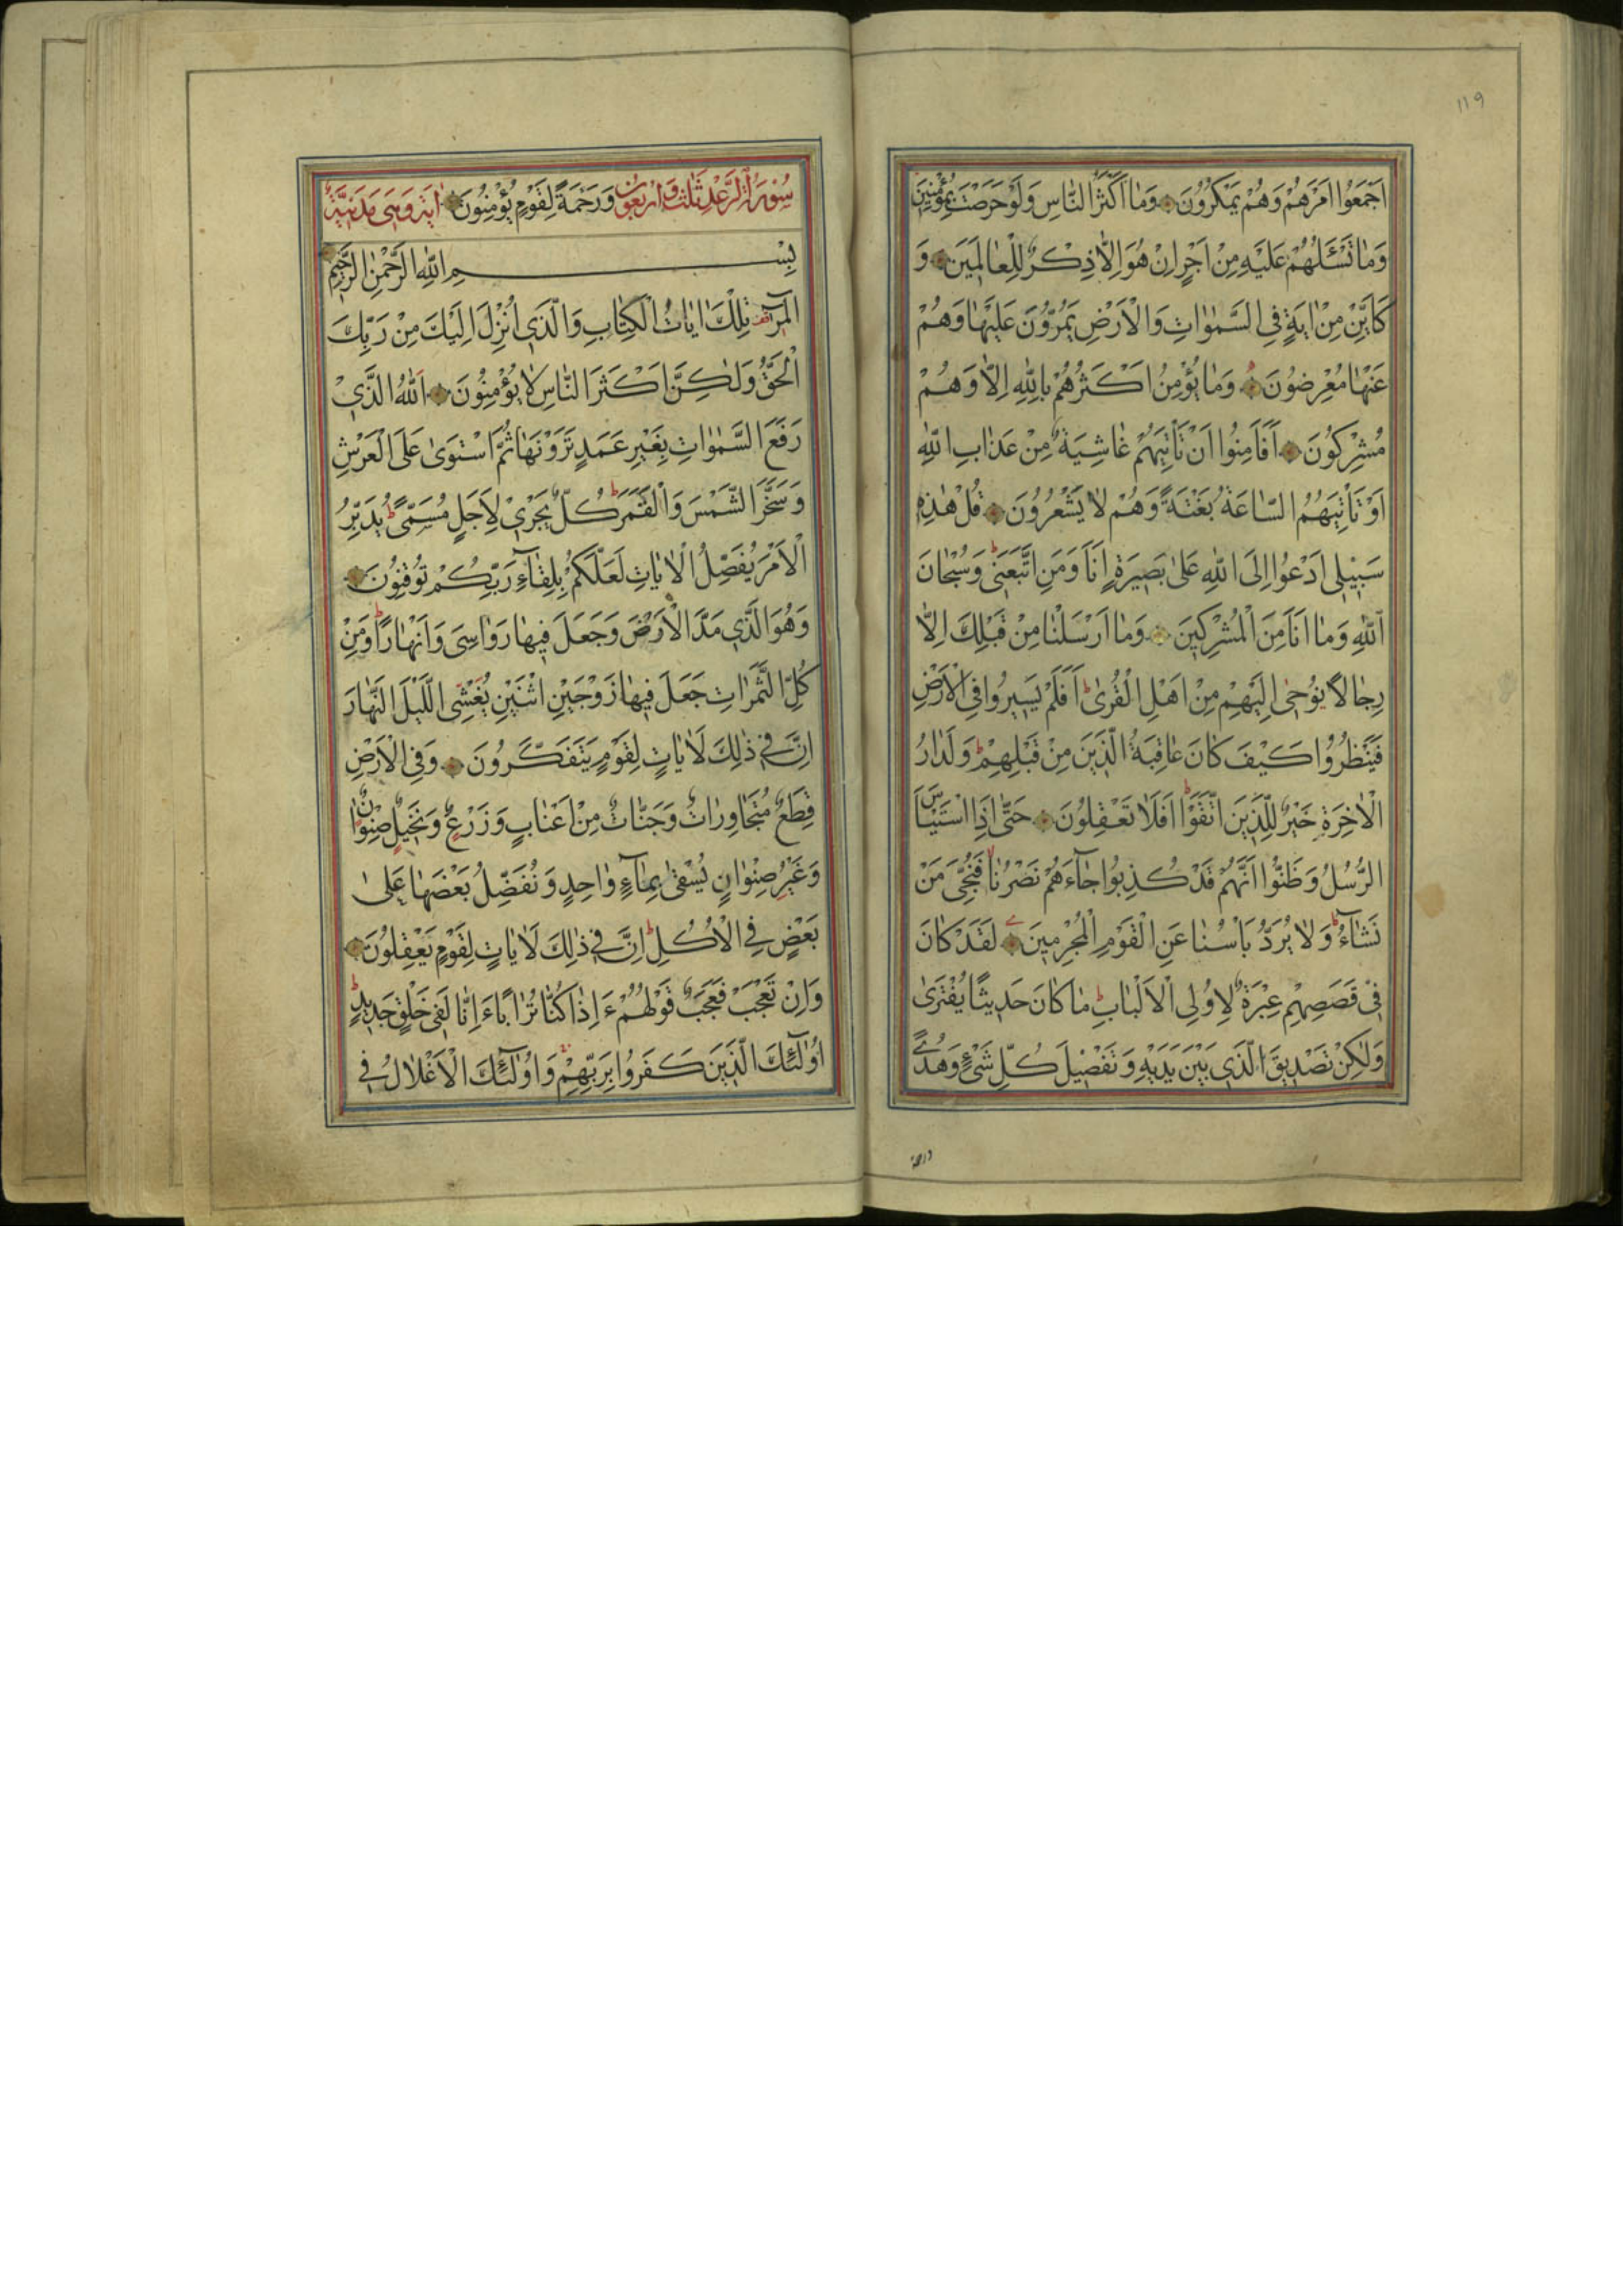 ١١٩
اَجْمَعُوا اَمْرَهُمْ وَهُمْ يَمْكُرُونَ وَمٰا اَكْثَرُ النّٰاسِ وَلَوْ حَرَصْتَ بِمُؤْمِنِينَ
وَمٰا تَسْئَلُهُمْ عَلَيْهِ مِنْ اَجْرٍ اِنْ هُوَ اِلّٰا ذِكْرٌ لِلْعٰالَمِينَ وَ
كَاَيِّنْ مِنْ اٰيَةٍ فِي السَّمٰوٰاتِ وَالْاَرْضِ يَمُرُّونَ عَلَيْهٰا وَهُمْ
عَنْهٰا مُعْرِضُونَ وَمٰا يُؤْمِنُ اَكْثَرُهُمْ بِاللّٰهِ اِلّٰا وَهُمْ
مُشْرِكُونَ اَفَاَمِنُوا اَنْ تَاْتِيَهُمْ غٰاشِيَةٌ مِنْ عَذٰابِ اللّٰهِ
اَوْ تَاْتِيَهُمُ السّٰاعَةُ بَغْتَةً وَهُمْ لٰا يَشْعُرُونَ قُلْ هٰذِهِ
سَبِيلِي اَدْعُوا اِلَى اللّٰهِ عَلىٰ بَصِيرَةٍ اَنَا وَمَنِ اتَّبَعَنِي وَسُبْحٰانَ
اللّٰهِ وَمٰا اَنَا مِنَ الْمُشْرِكِينَ وَمٰا اَرْسَلْنٰا مِنْ قَبْلِكَ اِلّٰا
رِجٰالًا يُوحىٰ اِلَيْهِمْ مِنْ اَهْلِ الْقُرىٰ اَفَلَمْ يَسِيرُوا فِي الْاَرْضِ
فَيَنْظُرُوا كَيْفَ كٰانَ عٰاقِبَةُ الَّذِينَ مِنْ قَبْلِهِمْ وَلَدٰارُ
الْاٰخِرَةِ خَيْرٌ لِلَّذِينَ اتَّقَوْا اَفَلٰا تَعْقِلُونَ حَتّٰى اِذَا اسْتَيْاَسَ
الرُّسُلُ وَظَنُّوا اَنَّهُمْ قَدْ كُذِبُوا جٰاءَهُمْ نَصْرُنٰا فَنُجِّيَ مَنْ
نَشٰاءُ وَلٰا يُرَدُّ بَاْسُنٰا عَنِ الْقَوْمِ الْمُجْرِمِينَ لَقَدْ كٰانَ
فِي قَصَصِهِمْ عِبْرَةٌ لِاُولِي الْاَلْبٰابِ مٰا كٰانَ حَدِيثًا يُفْتَرىٰ
وَلٰكِنْ تَصْدِيقَ الَّذِي بَيْنَ يَدَيْهِ وَتَفْصِيلَ كُلِّ شَيْءٍ وَهُدىً
ورحمة
سُورَةُ الرَّعْدِ ثَلٰثٌ وَاَرْبَعُونَ وَرَحْمَةً لِقَوْمٍ يُؤْمِنُونَ اٰيَةً وَهِيَ مَدَنِيَّةٌ
بِسْمِ اللّٰهِ الرَّحْمٰنِ الرَّحِيمِ
الٓمٓرٰ تِلْكَ اٰيٰاتُ الْكِتٰابِ وَالَّذِي اُنْزِلَ اِلَيْكَ مِنْ رَبِّكَ
الْحَقُّ وَلٰكِنَّ اَكْثَرَ النّٰاسِ لٰا يُؤْمِنُونَ اَللّٰهُ الَّذِي
رَفَعَ السَّمٰوٰاتِ بِغَيْرِ عَمَدٍ تَرَوْنَهٰا ثُمَّ اسْتَوىٰ عَلَى الْعَرْشِ
وَسَخَّرَ الشَّمْسَ وَالْقَمَرَ كُلٌّ يَجْرِي لِاَجَلٍ مُسَمًّى يُدَبِّرُ
الْاَمْرَ يُفَصِّلُ الْاٰيٰاتِ لَعَلَّكُمْ بِلِقٰاءِ رَبِّكُمْ تُوقِنُونَ
وَهُوَ الَّذِي مَدَّ الْاَرْضَ وَجَعَلَ فِيهٰا رَوٰاسِيَ وَاَنْهٰارًا وَمِنْ
كُلِّ الثَّمَرٰاتِ جَعَلَ فِيهٰا زَوْجَيْنِ اثْنَيْنِ يُغْشِي اللَّيْلَ النَّهٰارَ
اِنَّ فِي ذٰلِكَ لَاٰيٰاتٍ لِقَوْمٍ يَتَفَكَّرُونَ وَفِي الْاَرْضِ
قِطَعٌ مُتَجٰاوِرٰاتٌ وَجَنّٰاتٌ مِنْ اَعْنٰابٍ وَزَرْعٌ وَنَخِيلٌ صِنْوٰانٌ
وَغَيْرُ صِنْوٰانٍ يُسْقىٰ بِمٰاءٍ وٰاحِدٍ وَنُفَضِّلُ بَعْضَهٰا عَلىٰ
بَعْضٍ فِي الْاُكُلِ اِنَّ فِي ذٰلِكَ لَاٰيٰاتٍ لِقَوْمٍ يَعْقِلُونَ
وَاِنْ تَعْجَبْ فَعَجَبٌ قَوْلُهُمْ ءَاِذٰا كُنّٰا تُرٰابًا ءَاِنّٰا لَفِي خَلْقٍ جَدِيدٍ
اُولٰئِكَ الَّذِينَ كَفَرُوا بِرَبِّهِمْ وَاُولٰئِكَ الْاَغْلٰالُ فِي